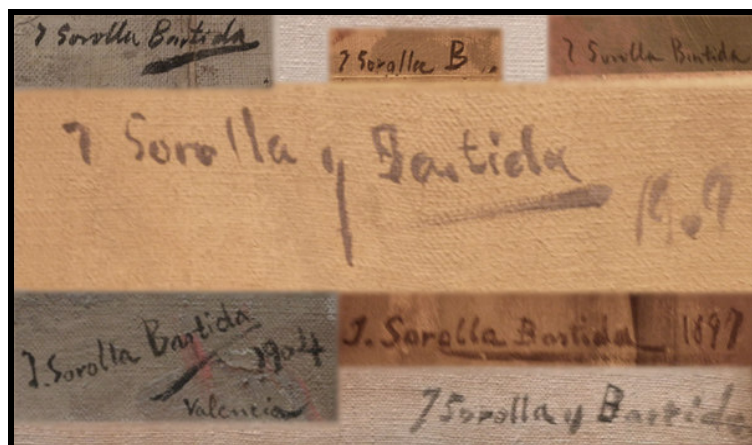 J Sorolla Bastida
J Sorolla B
J Sorolla Bastida
J Sorolla y Bastida 1909
J. Sorolla Bastida 1904
Valencia
J. Sorolla Bastida 1897
J Sorolla y Bastida